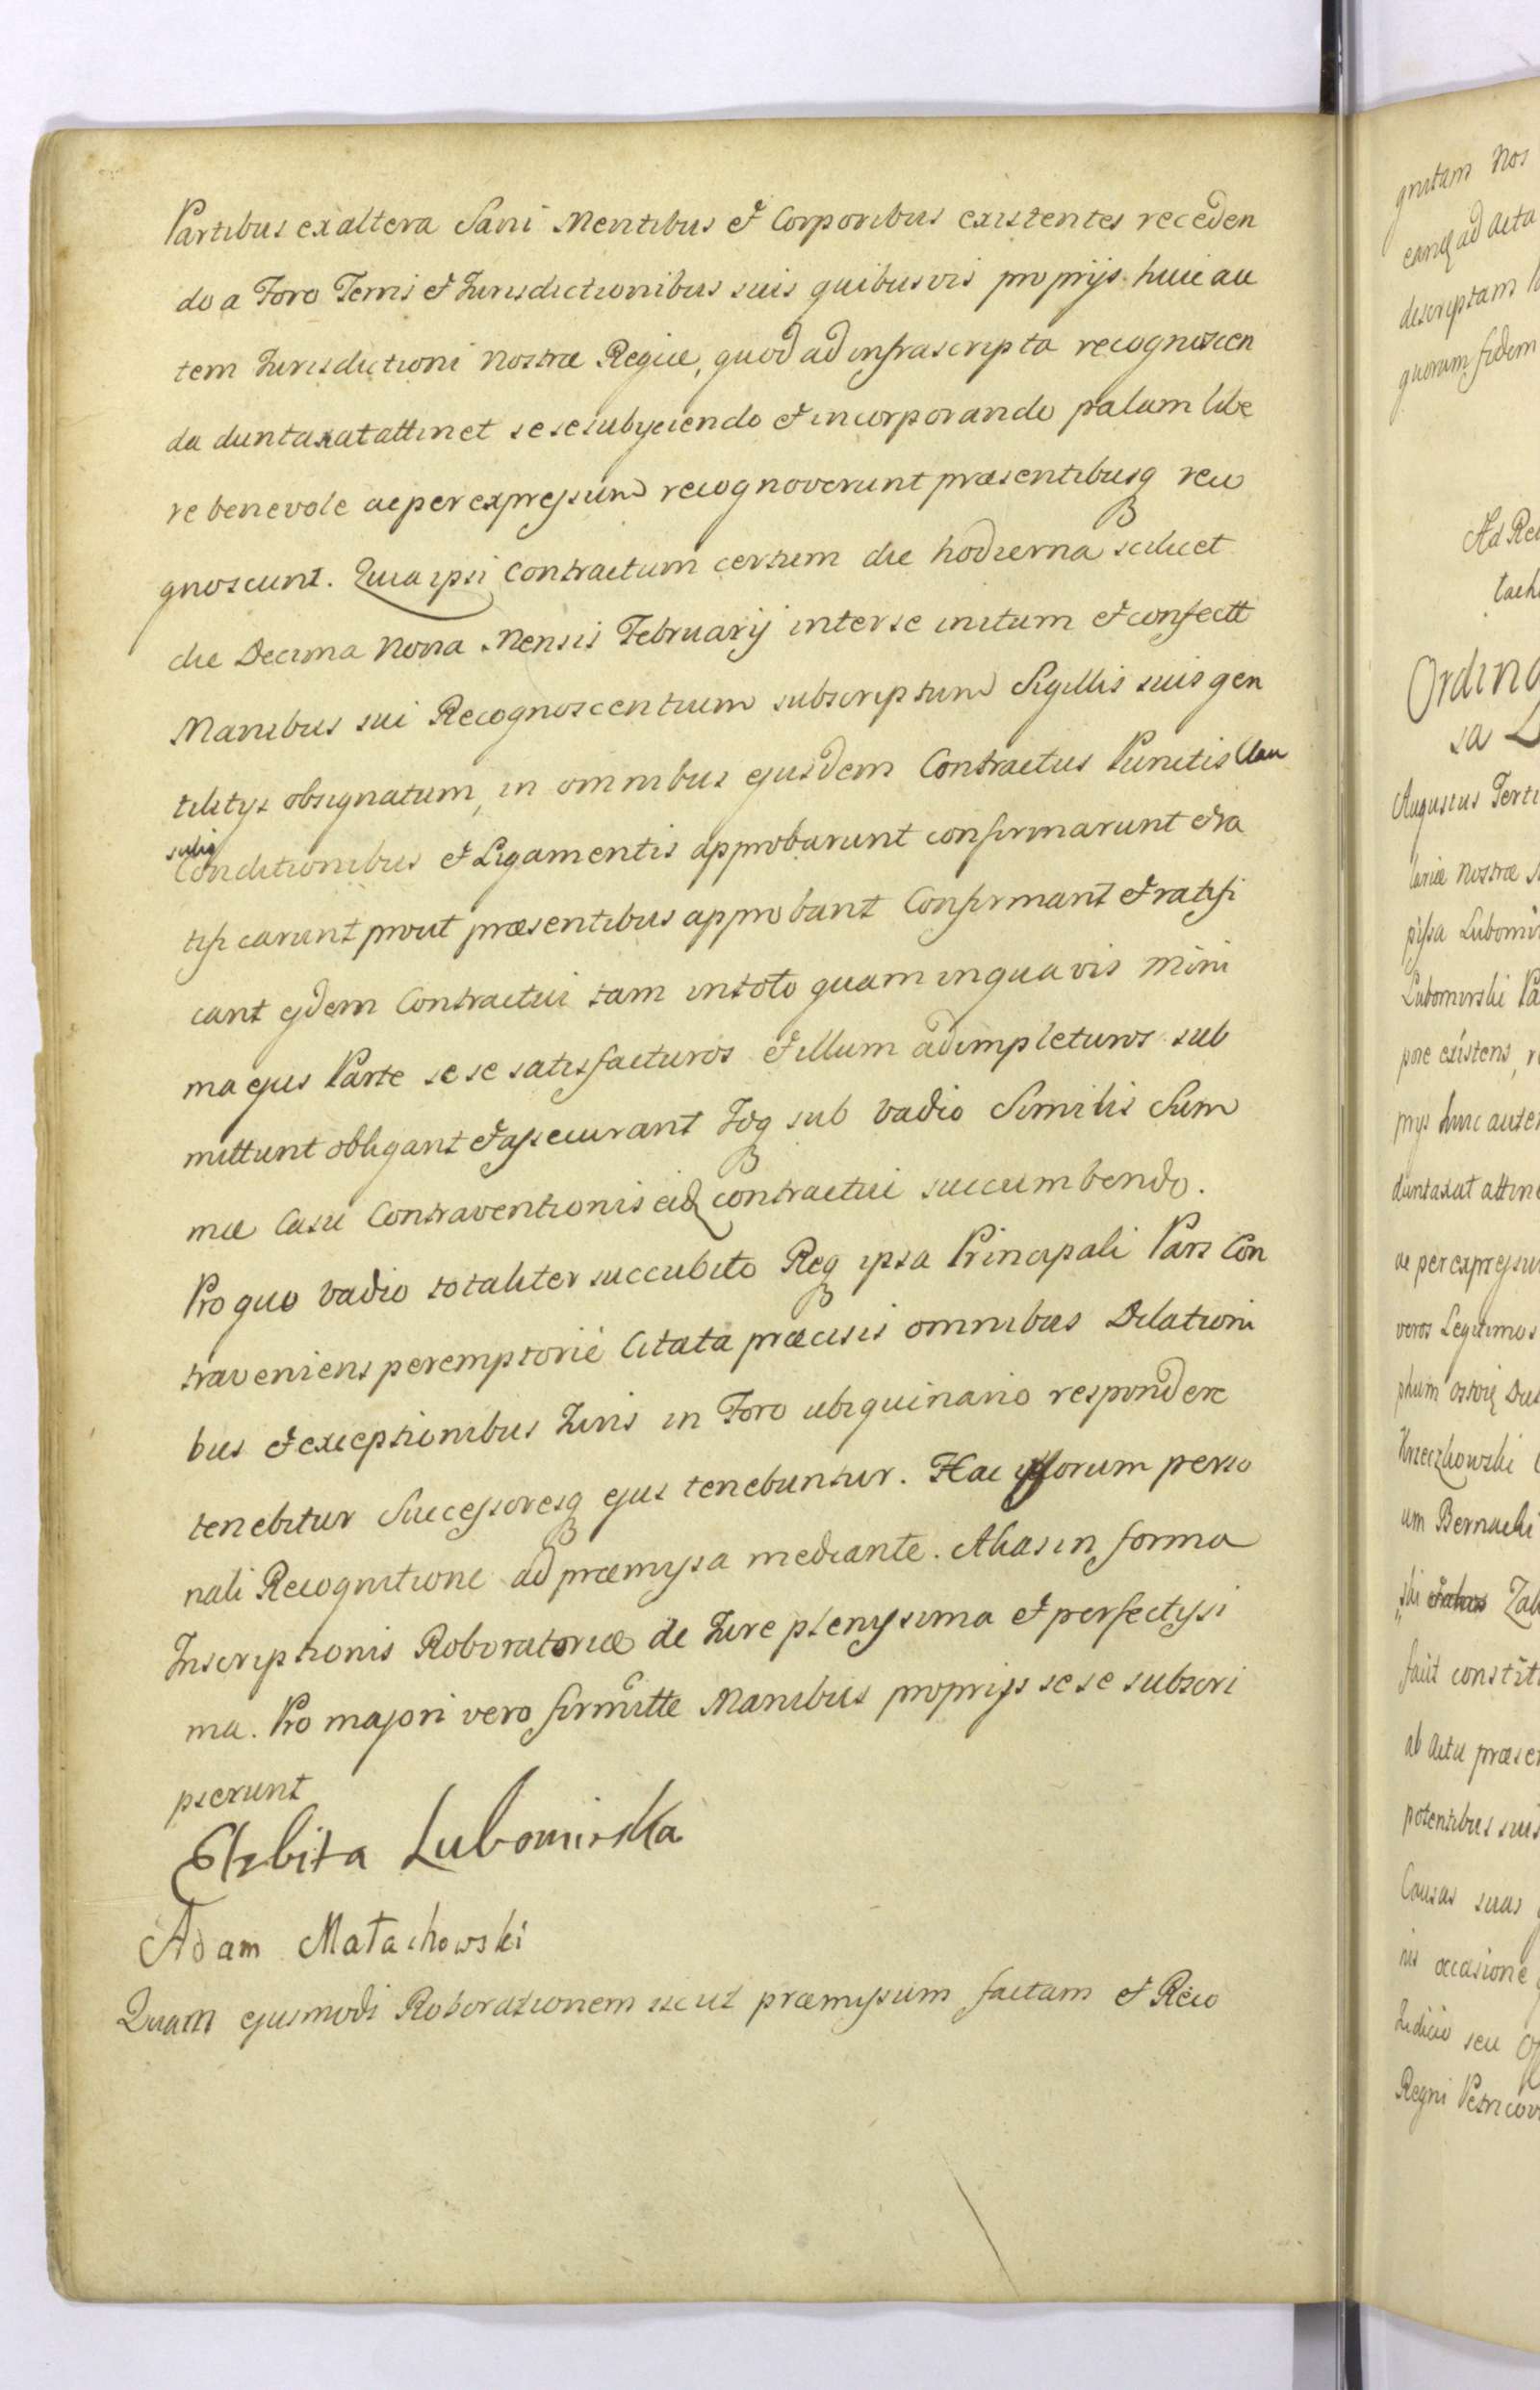 Partibus ex altera Sani Mentibus et Corporibus existentes receden
do a Foro Terris et Jurisdictionibus suis quibusvis proprijs huic au
tem Jurisdictioni Nostræ Regiæ, quod ad infrascripta recognoscen
da duntaxat attinet sese subijciendo et incorporando palam libe
re benevole ac per expressum recognoverunt præsentibusq reco
gnoscunt. Quia ipsi Contractum certum die hodierna scilicet
die Decima Nona Mensis Februarij inter se initum et confectt
Manibus sui Recognoscentium subscriptum Sigillis suis gen
tilitijs obsignatum, in omnibus ejusdem Contractus Punctis Clau
sulis Conditionibus et Ligamentis approbarunt confirmarunt et ra
tificarunt prout præsentibus approbant Confirmant et ratifi
cant ejdem Contractui tam in toto quam in quavis mini
ma ejus Parte sese satisfacturos et illum adimpleturos sub
mittunt obligant et assecurant Idq sub vadio Similis Sum
mæ Casu Contraventionis eidq contractui succumbendo.
Pro quo vadio totaliter succubito Req ipsa Principali Pars Con
traveniens peremptorie Citata præcisis omnibus Dilationi
bus et exceptionibus Juris in Foro ubiquinario respondere
tenebitur Successoresq ejus tenebuntur. Hac ipsorum perso
nali Recognitione ad præmissa mediante. Alias in forma
Inscriptionis Roboratoriæ de Jure plenissima et perfectissi
ma. Pro majori vero firmitte Manibus proprijs sese subscri
pserunt
Elzbita Lubomirska
Adam Małachowski
Quam ejusmodi Roborationem sicut præmissum factam et Reco
gnitam Nos
eamq ad acta
descriptam
quorum fidem
Ad Re
tach
Ordina
sa
Augustus Terti
lariæ Nostræ
pissa Lubomir
Lubomirski Pa
pore existens, r
prijs huic aute
duntaxat attine
ac per expressu
veros Legitimos
phum
Krzeczkowski
um Bernacki
ski Zal
facit constit
ab actu præse
potentibus suis
Causas suas
nis occasione
Judicio seu
Regni Petricov